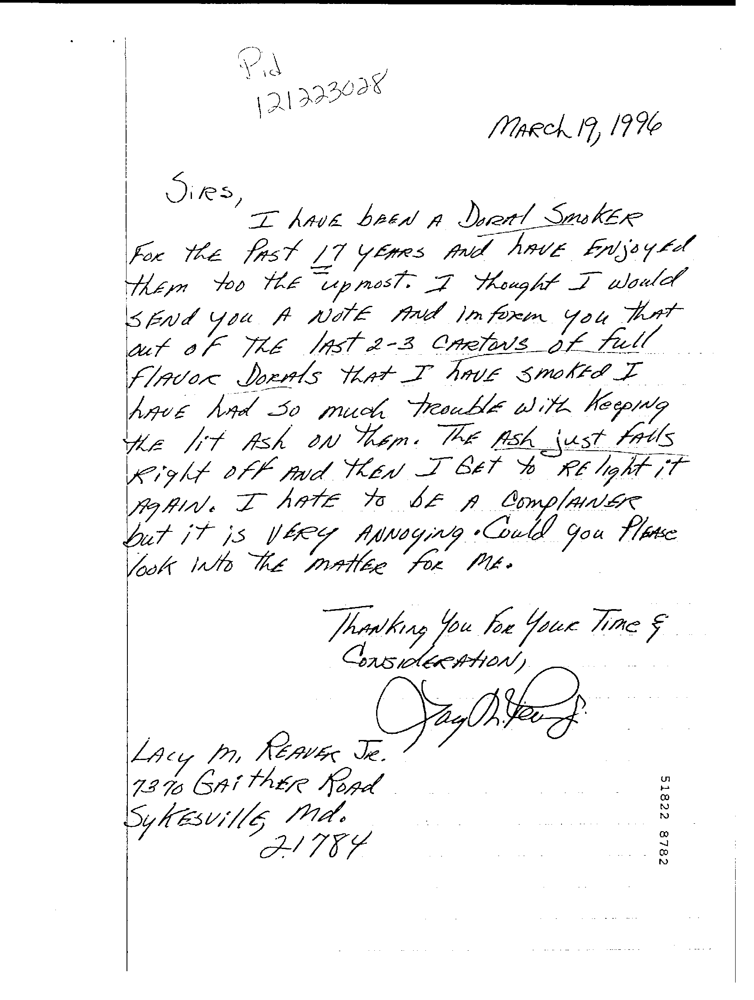 Pid
121223028
March 19, 1996
Sirs,
I have been a Doral Smoker
for the past 17 years and have enjoyed
them too the upmost. I thought I would
send you a note and imform you that
out of the last 2-3 cartons of full
flavor Dorals that I have smoked I
have had so much trouble with keeping
the lit ash on them. The ash just falls
right off and then I get to relight it
again. I hate to be a complainer
but it is very annoying. Could you please
look into the matter for me.
Thanking you for your time &
consideration,
Lacy M. Reaver Jr.
7370 Gaither Road
Sykesville, Md.
21784
51822 8782